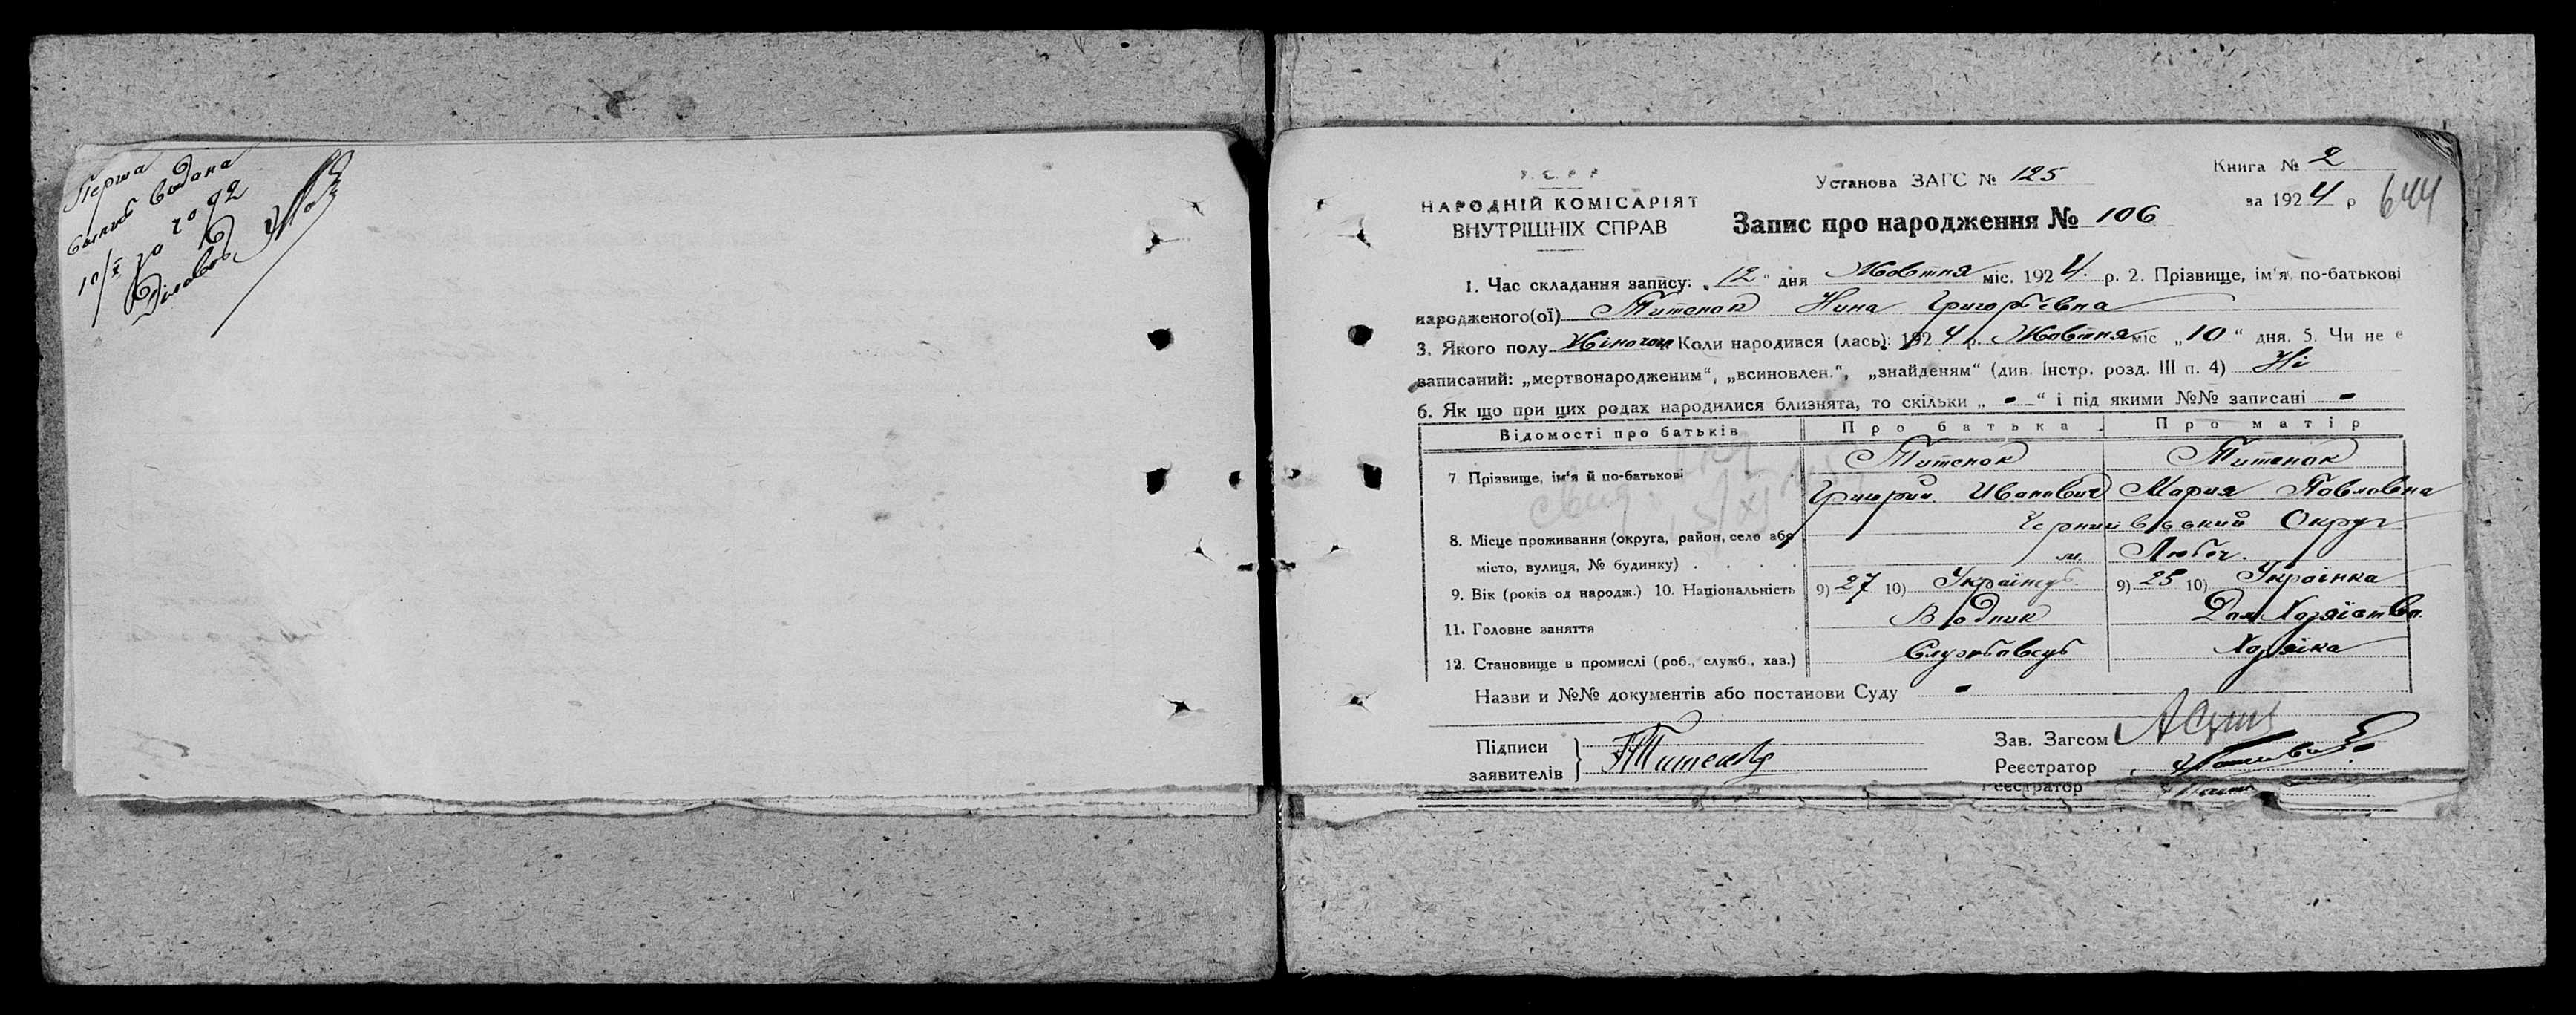 Перша
выпись выдана
10/X
Діловод
У.С.Р.Р.
НАРОДНІЙ КОМІСАРІЯТ
ВНУТРІШНІХ СПРАВ
Установа ЗАГС № 125
Книга № 2
за 1924 р
644
Запис про народження № 106
1. Час складання запису: „12“ дня Жовтня міс. 1924 р. 2. Прізвище, ім‘я, по-батькові
народженого(ої) Титенок Нина Григорьевна
3. Якого полу Жіночого Коли народився (лась): 1924 р. Жовтня міс „10“ дня. 5. Чи не є
записаний: „мертвонародженим“, „всиновлен.“, „знайденям“ (див. Інстр. розд. III п. 4) Ні
6. Як що при цих родах народилися близнята, то скільки „ - “ і під якими №№ записані -
Відомості про батьків Про батька Про матір
7 Прізвище, ім‘я й по-батькові Титенок Титенок
Григорий Иванович Мария Павловна
8. Місце проживання (округа, район, село або Чернигівський Округ
місто, вулиця, № будинку) м. Любеч.
9. Вік (років од народж.) 10. Національність 9) 27 10) Українець 9) 25 10) Українка
11. Головне заняття Водник Дом Хозяіство.
12. Становище в промислі (роб., служб., хаз.) Службовець Хозяіка
Назви и №№ документів або постанови Суду -
Підписи
заявителів
Титенок
Зав. Загсом
Реєстратор
Реєстратор